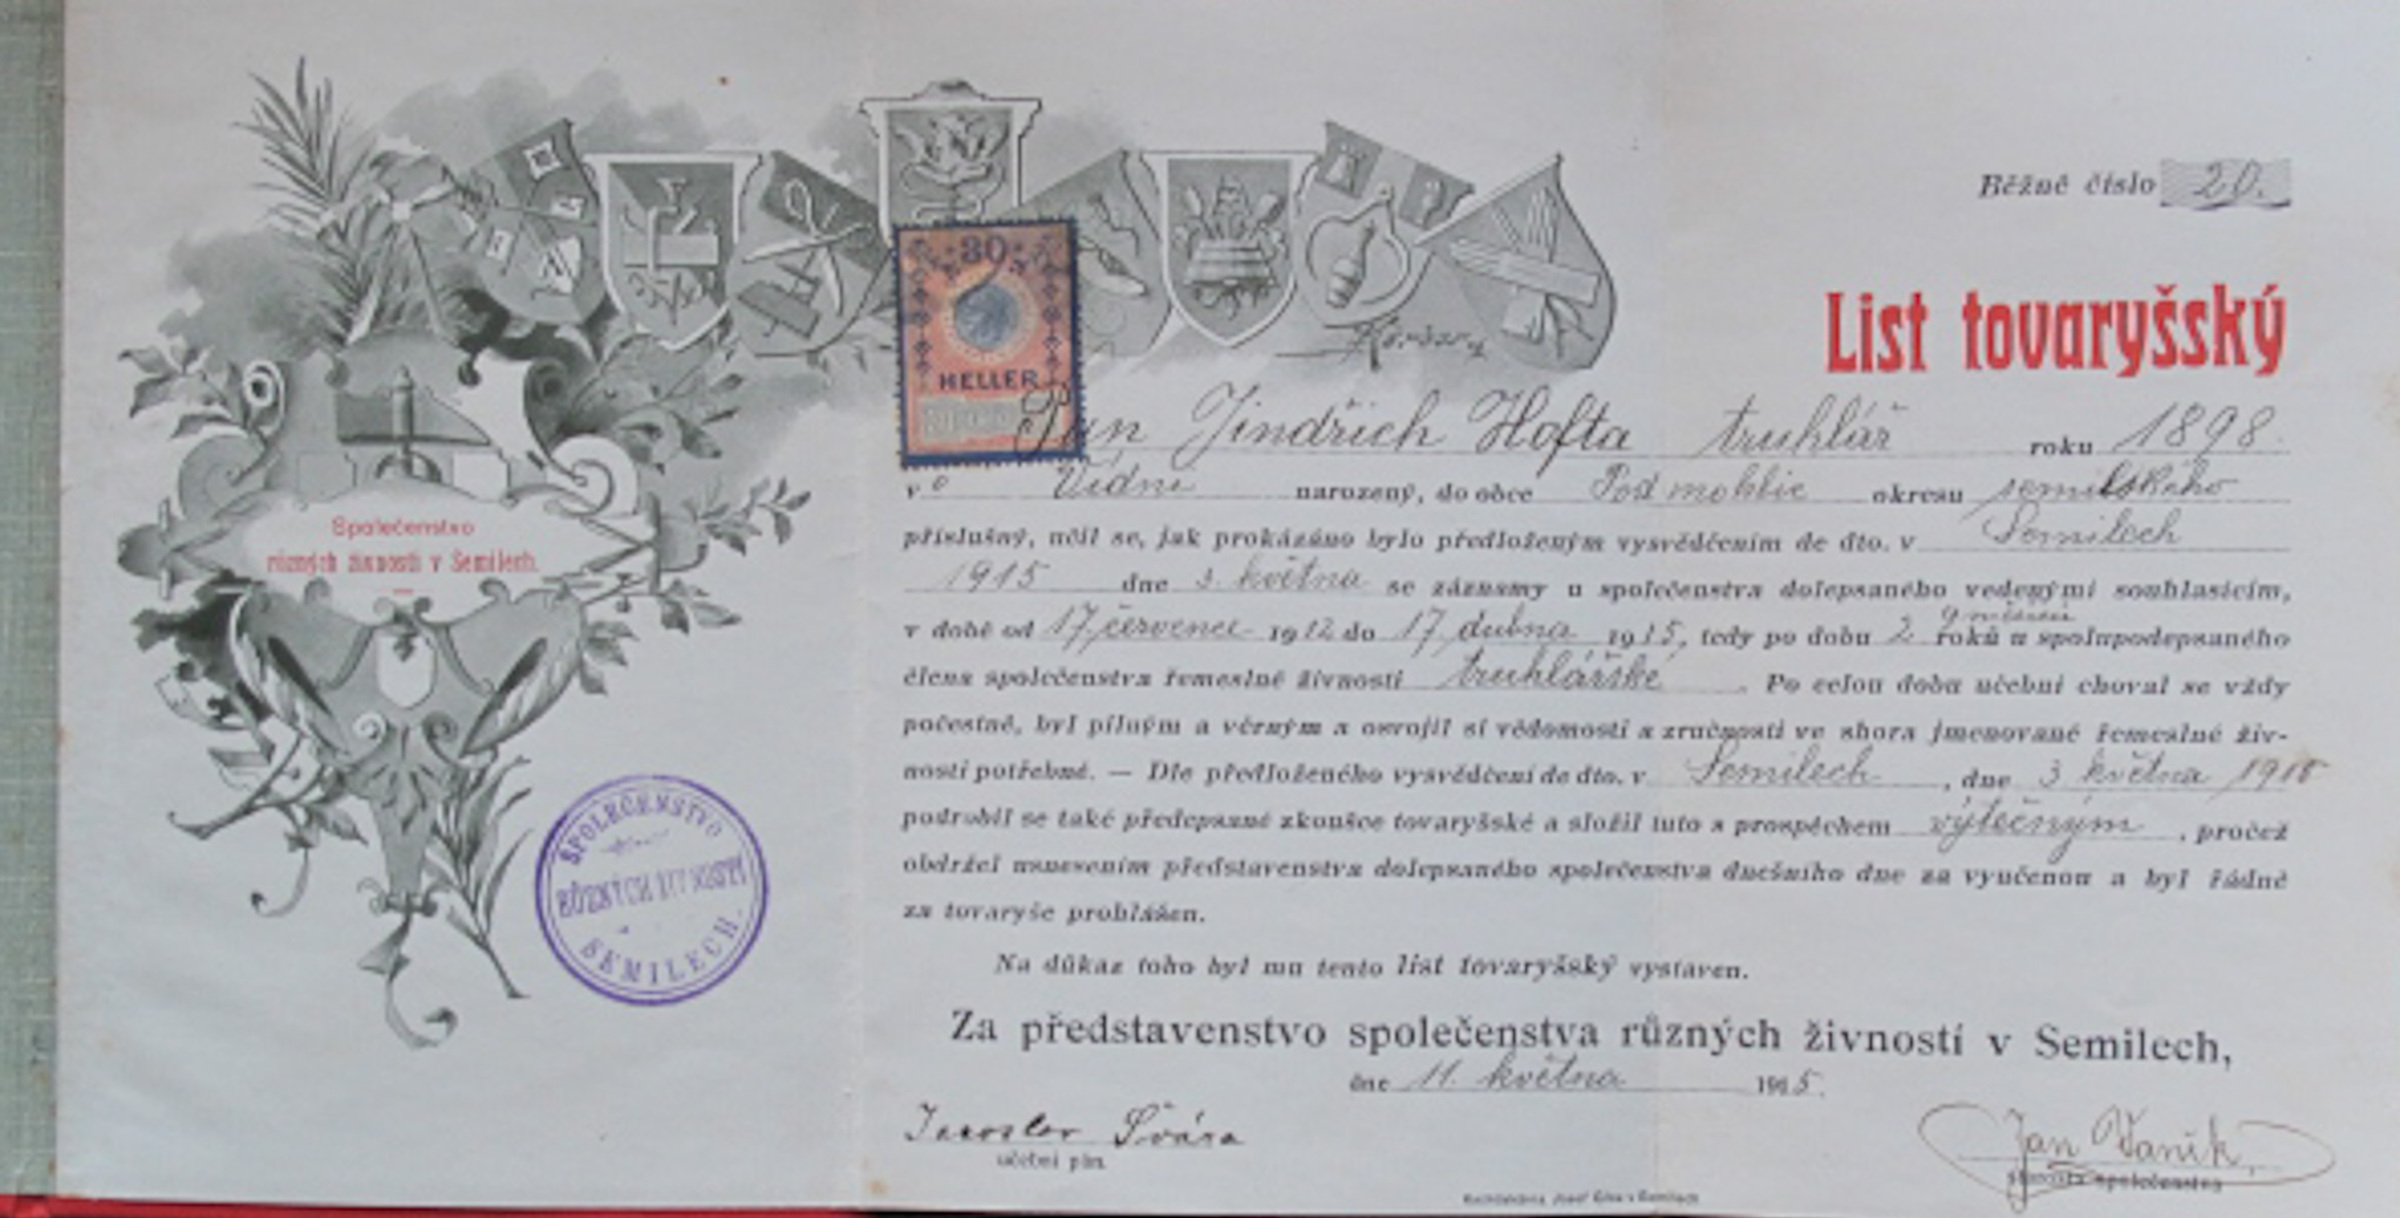 Běžné číslo 20.
List tovaryšský
30
HELLER
Pan Jindřich Hofta truhlář roku 1898.
v Vídni narozený, do obce Pod mokhlic okresu semilského
příslušný, učil se, jak prokázáno bylo předloženým vysvědčením de dto. v Semilech
1915 dne 3. května se záznamy u společenstva dolepsaného vedenými souhlasícím,
9 měsíců
v době od 17 července 1912 do 17 dubna 1915, tedy po dobu 2 roků u spolupodepsaného
člena společenstva řemeslné živnosti truhlářské. Po celou dobu učební choval se vždy
počestně, byl pilným a věrným a osvojil si vědomosti a zručnosti ve shora jmenované řemeslné živ-
nosti potřebné. — Dle předloženého vysvědčení de dto. v Semilech, dne 3 května 1915
podrobil se také předepsané zkoušce tovaryšské a složil tuto s prospěchem výtečným, pročež
obdržel usnesením představenstva dolepsaného společenstva dnešního dne za vyučenou a byl řádně
za tovaryše prohlášen.
Na důkaz toho byl mu tento list tovaryšský vystaven.
Za představenstvo společenstva různých živností v Semilech,
dne 11. května 1915.
Jaroslav Švára
učební pán.
Jan Vaník
starosta společenstva
Společenstvo
různých živností v Semilech.
SPOLEČENSTVO
RŮZNÝCH ŽIVNOSTÍ
SEMILECH